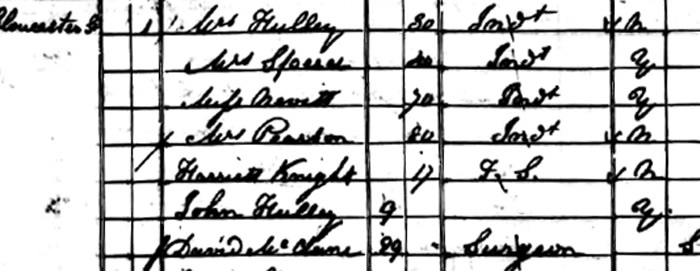 Gloucester St 1 Mrs Hulley 30 Indt N
Mrs 40 Indt Y
Miss Nevett 70 Indt Y
Mrs Pearson 60 Indt N
Harriett Knight 17 F. S. N
John Hulley 9 Y
David Mc 29 Surgeon S